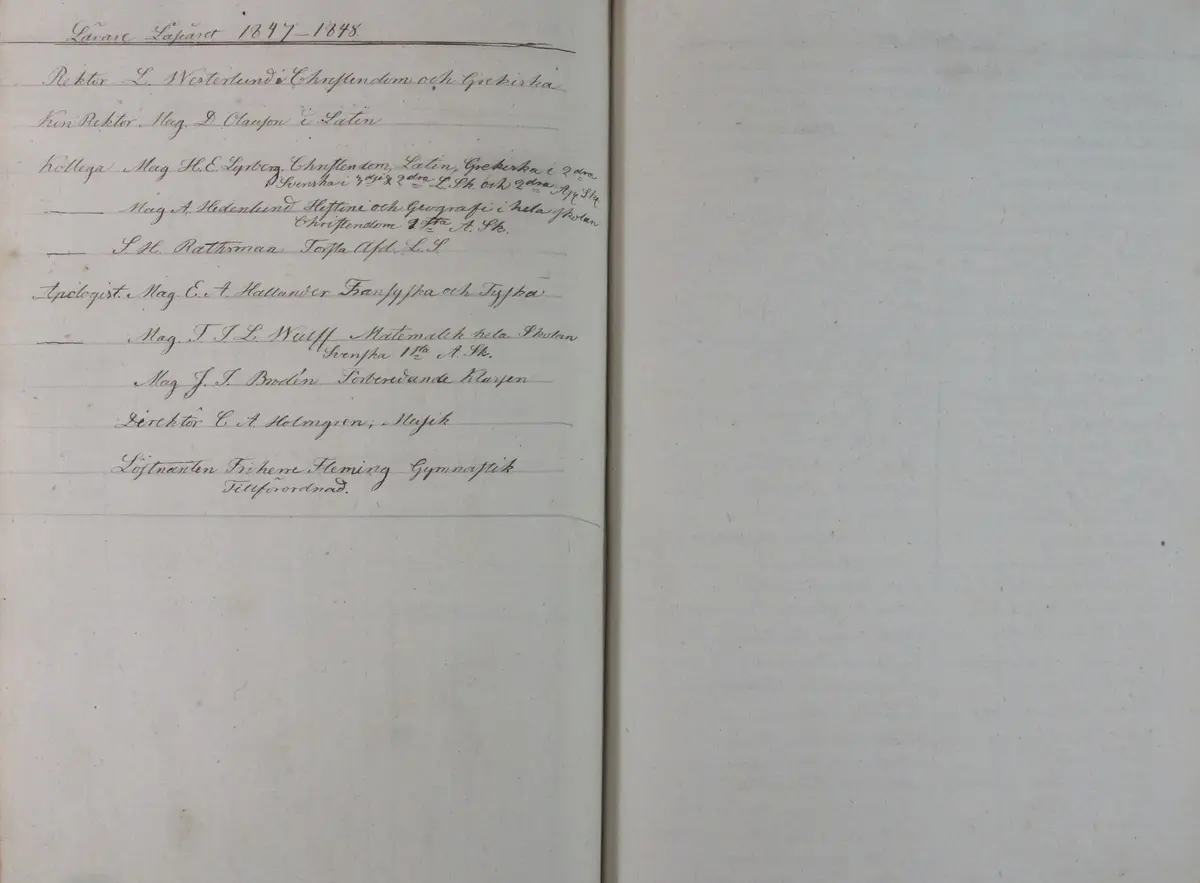 Lärare Läsåret 1847–1848.
Rektor L. Westerlund i Christendom och Grekiska
Kon Rektor Mag. D. Olauson i Latin
Kollega Mag H. E. Lyrberg. Christendom, Latin, Grekiska i 2dra
Svenska i 3dje & 2dra L. Sk. och 2dra App. Skn
—— Mag A. Hedenlund Histirie och Geografi i hela skolan
Christendom 1sta A. Sk.
—— S. H. Rathsman Forsta Afd. L. S.
Apologist. Mag. E. A. Hallander Fransyska och Tyska
—— Mag. T. J. L. Wulff Matematik hela Skolan
Svenska 1sta A. Sk.
Mag J. J. Brodén Forberedande Klassen
Direktör C A. Holmgren, Musik
Löjtnanten Friherre Fleming Gymnastik
Tillförordnad.